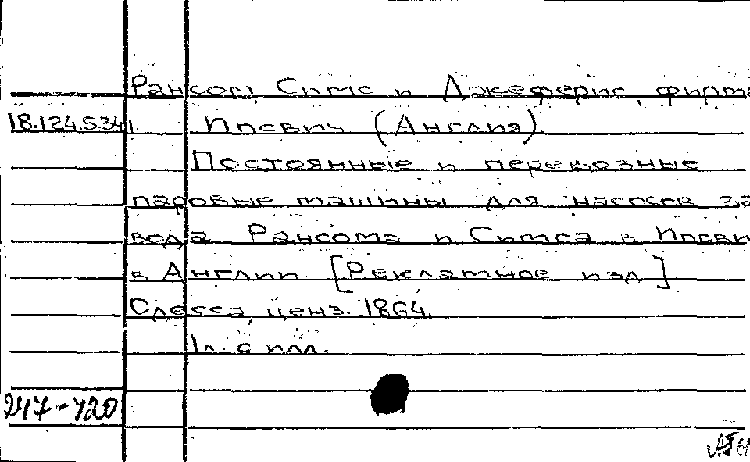 Рансом, Симс и Джеферис, фирма
18.124.5.34
Ипсвич (Англия)
Постоянные и перевозные
паровые машины для насосев за
вода Рансома и Симса в Ипсви
в Англии [Рекламное изд]
Одесса, ценз. 1864.
1 л. с илл.
247-420